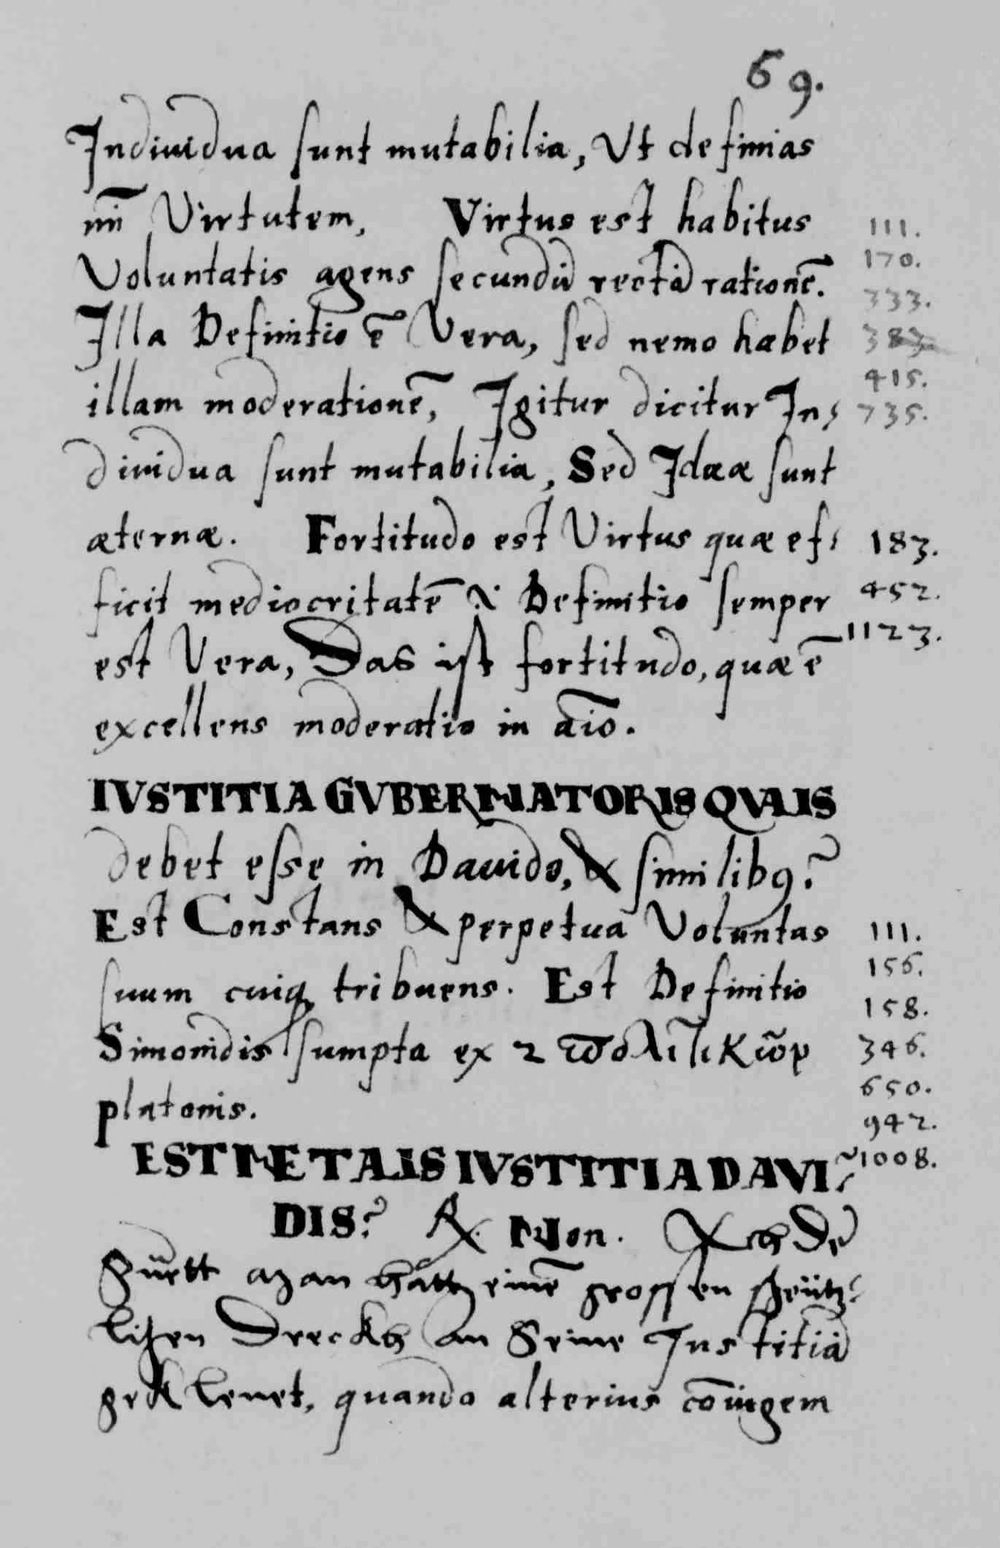 69.
Individua sunt mutabilia, Ut definias
mı̄ Virtutem, Virtus est habitus
111.
Voluntatis agens secundū rectā rationē.
170.
333.
Illa Definitio ē Vera, sed nemo habet
383
illam moderationē, Igitur dicitur In,
415.
735.
dividua sunt mutabilia, Sed Idææ sunt
æternæ. Fortitudo est Virtus quæ ef,
183.
ficit mediocritatē & Definitio semper
452.
est Vera, Das ist fortitudo, quæ ē
1123.
excellens moderatio in aīo.
IVSTITIA GVBERNATORIS QVALIS
debet esse in Davide, & similib9?
Est Constans & perpetua Voluntas
111.
suum cuiq tribuens. Est Definitio
156.
158.
Simonidis sumpta ex 2 πολιτικῶν
346.
platonis.
650.
942.
EST NE TALIS IVSTITIA DAVI
1008.
DIS? R. Non.
hatt einē grossen
Dreckh an seine Iustitiā
quando alterius cōiugem